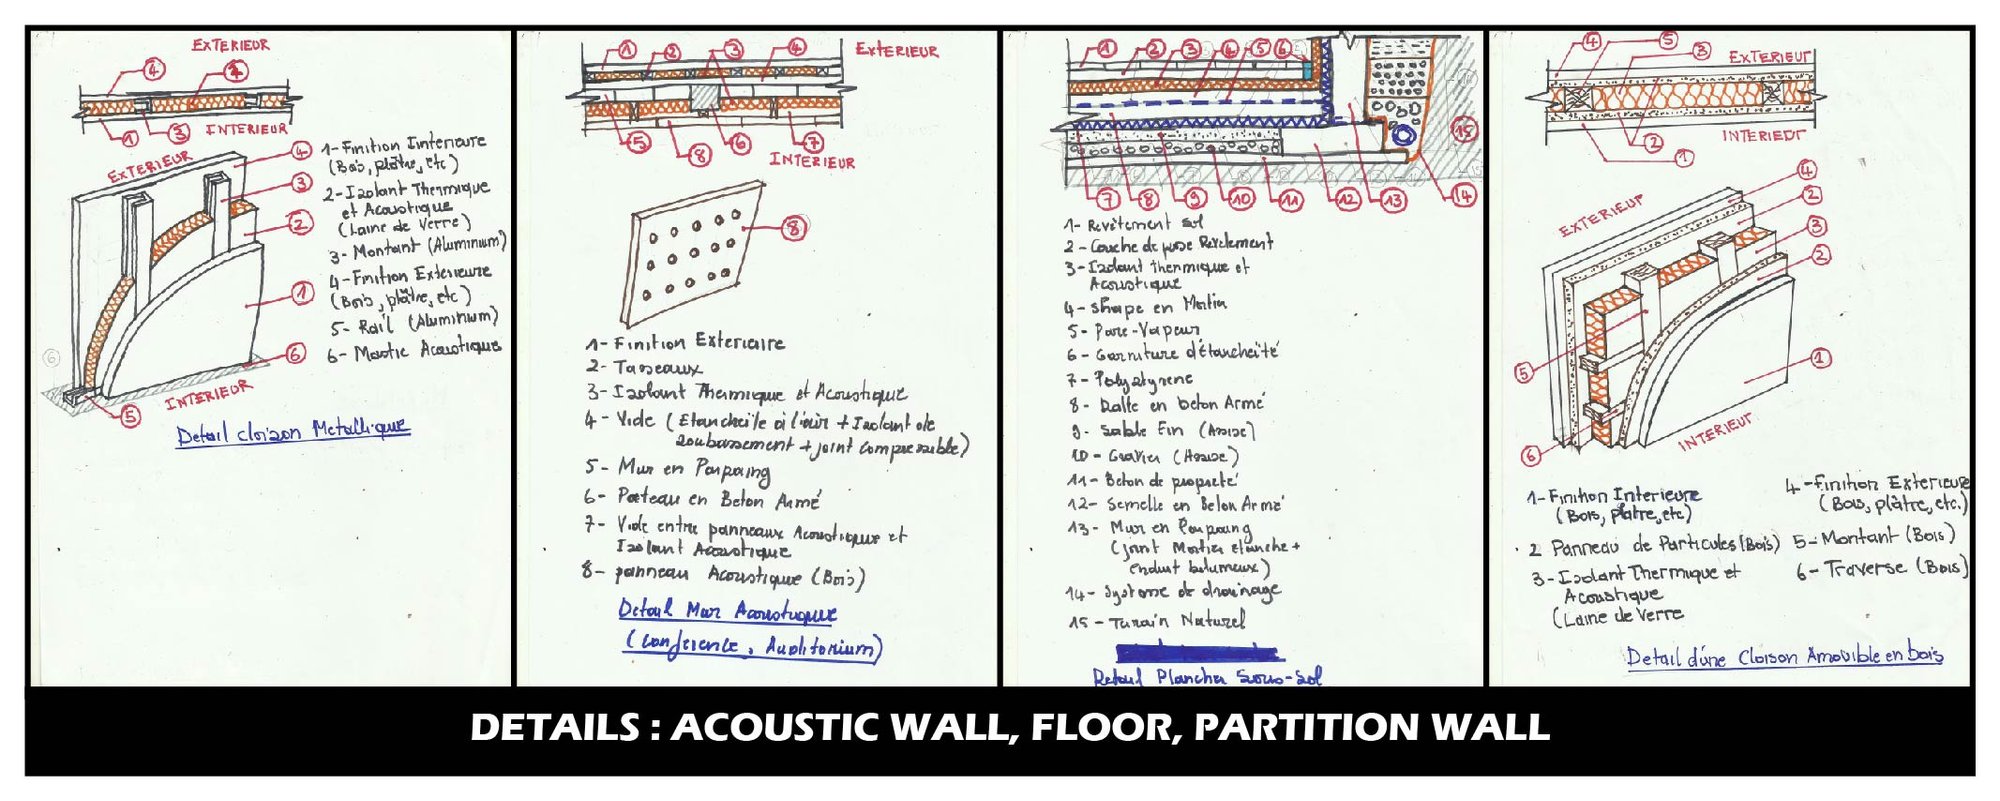 EXTERIEUR
4
2
1
3
INTERIEUR
EXTERIEUR
4
3
2
1
6
5
INTERIEUR
1- Finition Iinterieure
(Bois, plâtre, etc)
2- Izolant Thermique
et Acoustique
(Laine de Verre)
3- Montant (Aluminium)
4- Finition Exterieure
(Bois, plâtre, etc)
5- Rail (Aluminium)
6- Mastic Acoustique
6
Detail cloison Metallique
1
2
3
4
EXTERIEUR
5
8
6
7
INTERIEUR
8
1- Finition Exterieure
2- Tasseaux
3- Izolant Thermique et Acoustique
4- Vide (Etancheïte à l'air + Izolant de
soubassement + joint compressible)
5- Mur en Parpaing
6- Poteau en Beton Armé
7- Vide entre panneaux Acoustique et
Izolant Acoustique
8- panneau Acoustique (Bois)
Detail Mur Acoustique
(Conference, Auditorium)
1
2
3
4
5
6
15
7
8
9
10
11
12
13
14
1- Revêtement sol
2- Couche de pose Revêtement
3- Izolant thermique et
Acoustique
4- Shape en
5- Pare-Vapeur
6- Garniture d'étancheïté
7- Polystyrene
8- Dalle en beton Armé
9- Sable Fin (Assise)
10- Gravier (Assise)
11- Beton de propreté
12- Semelle en Beton Armé
13- Mur en Parpaing
(joint Mortier etanche +
enduit bitumeux)
14- Systeme de drainage
15- Terrain Naturel
Detail Plancher Sous-Sol
4
5
3
EXTERIEUR
INTERIEUR
2
1
EXTERIEUR
4
2
3
2
1
5
6
INTERIEUR
1- Finition Interieure
(Bois, plâtre, etc)
2 Panneau de Particules (Bois)
3- Izolant Thermique et
Acoustique
(Laine de Verre
4- Finition Exterieure
(Bois, plâtre, etc.)
5- Montant (Bois)
6- Traverse (Bois)
Detail d'une Cloison Amovible en bois
DETAILS : ACOUSTIC WALL, FLOOR, PARTITION WALL